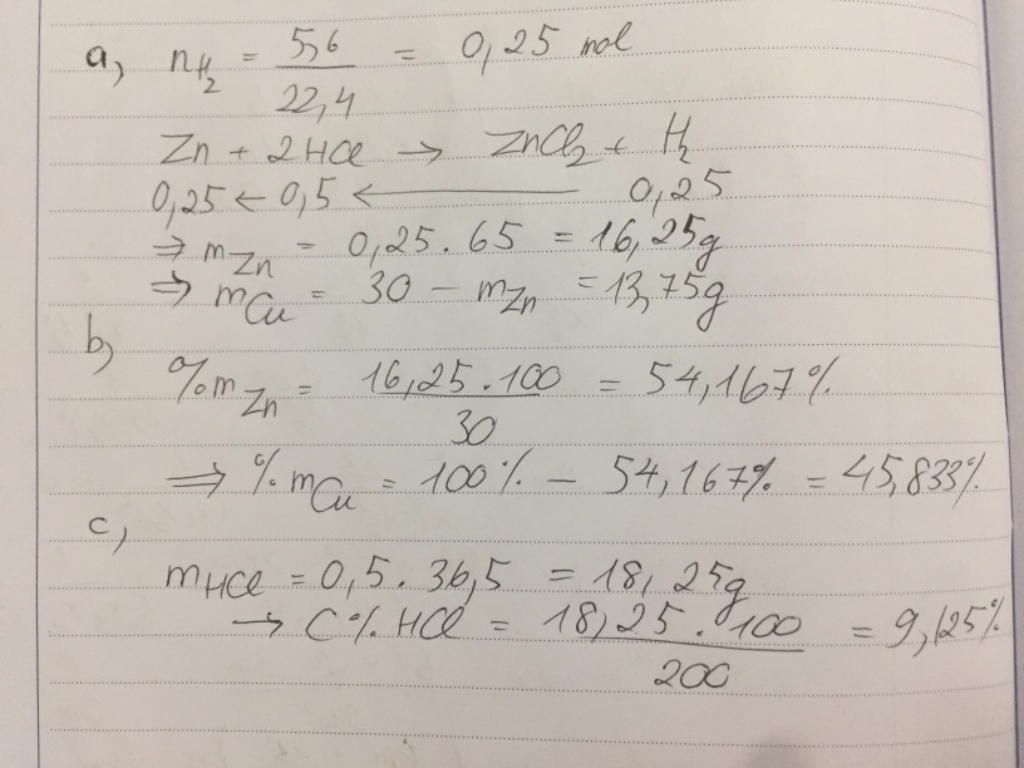 a, nH2 = 5,6 / 22,4 = 0,25 mol
Zn + 2HCl → ZnCl2 + H2
0,25 ← 0,5 ← 0,25
⇒ mZn = 0,25 . 65 = 16,25g
⇒ mCu = 30 − mZn = 13,75g
b,
%mZn = 16,25 . 100 / 30 = 54,167%
⇒ %mCu = 100% − 54,167% = 45,833%
c,
mHCl = 0,5 . 36,5 = 18,25g
→ C% HCl = 18,25 . 100 / 200 = 9,125%